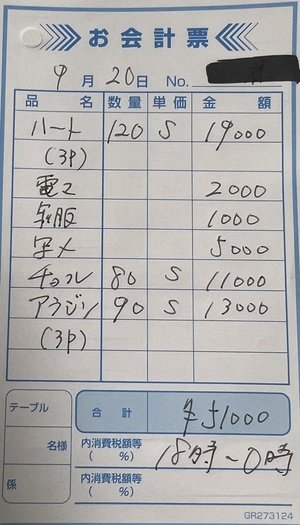 お会計票
9月20日 No.
品名 数量 単価 金額
ハート 120 S 19000
(3P)
電マ 2000
制服 1000
写メ 5000
チョコレ 80 S 11000
アラジン 90 S 13000
(3P)
テーブル 合計 ¥51000
名様 内消費税額等 ( %) 18時~0時
係 内消費税額等 ( %)
GR273124